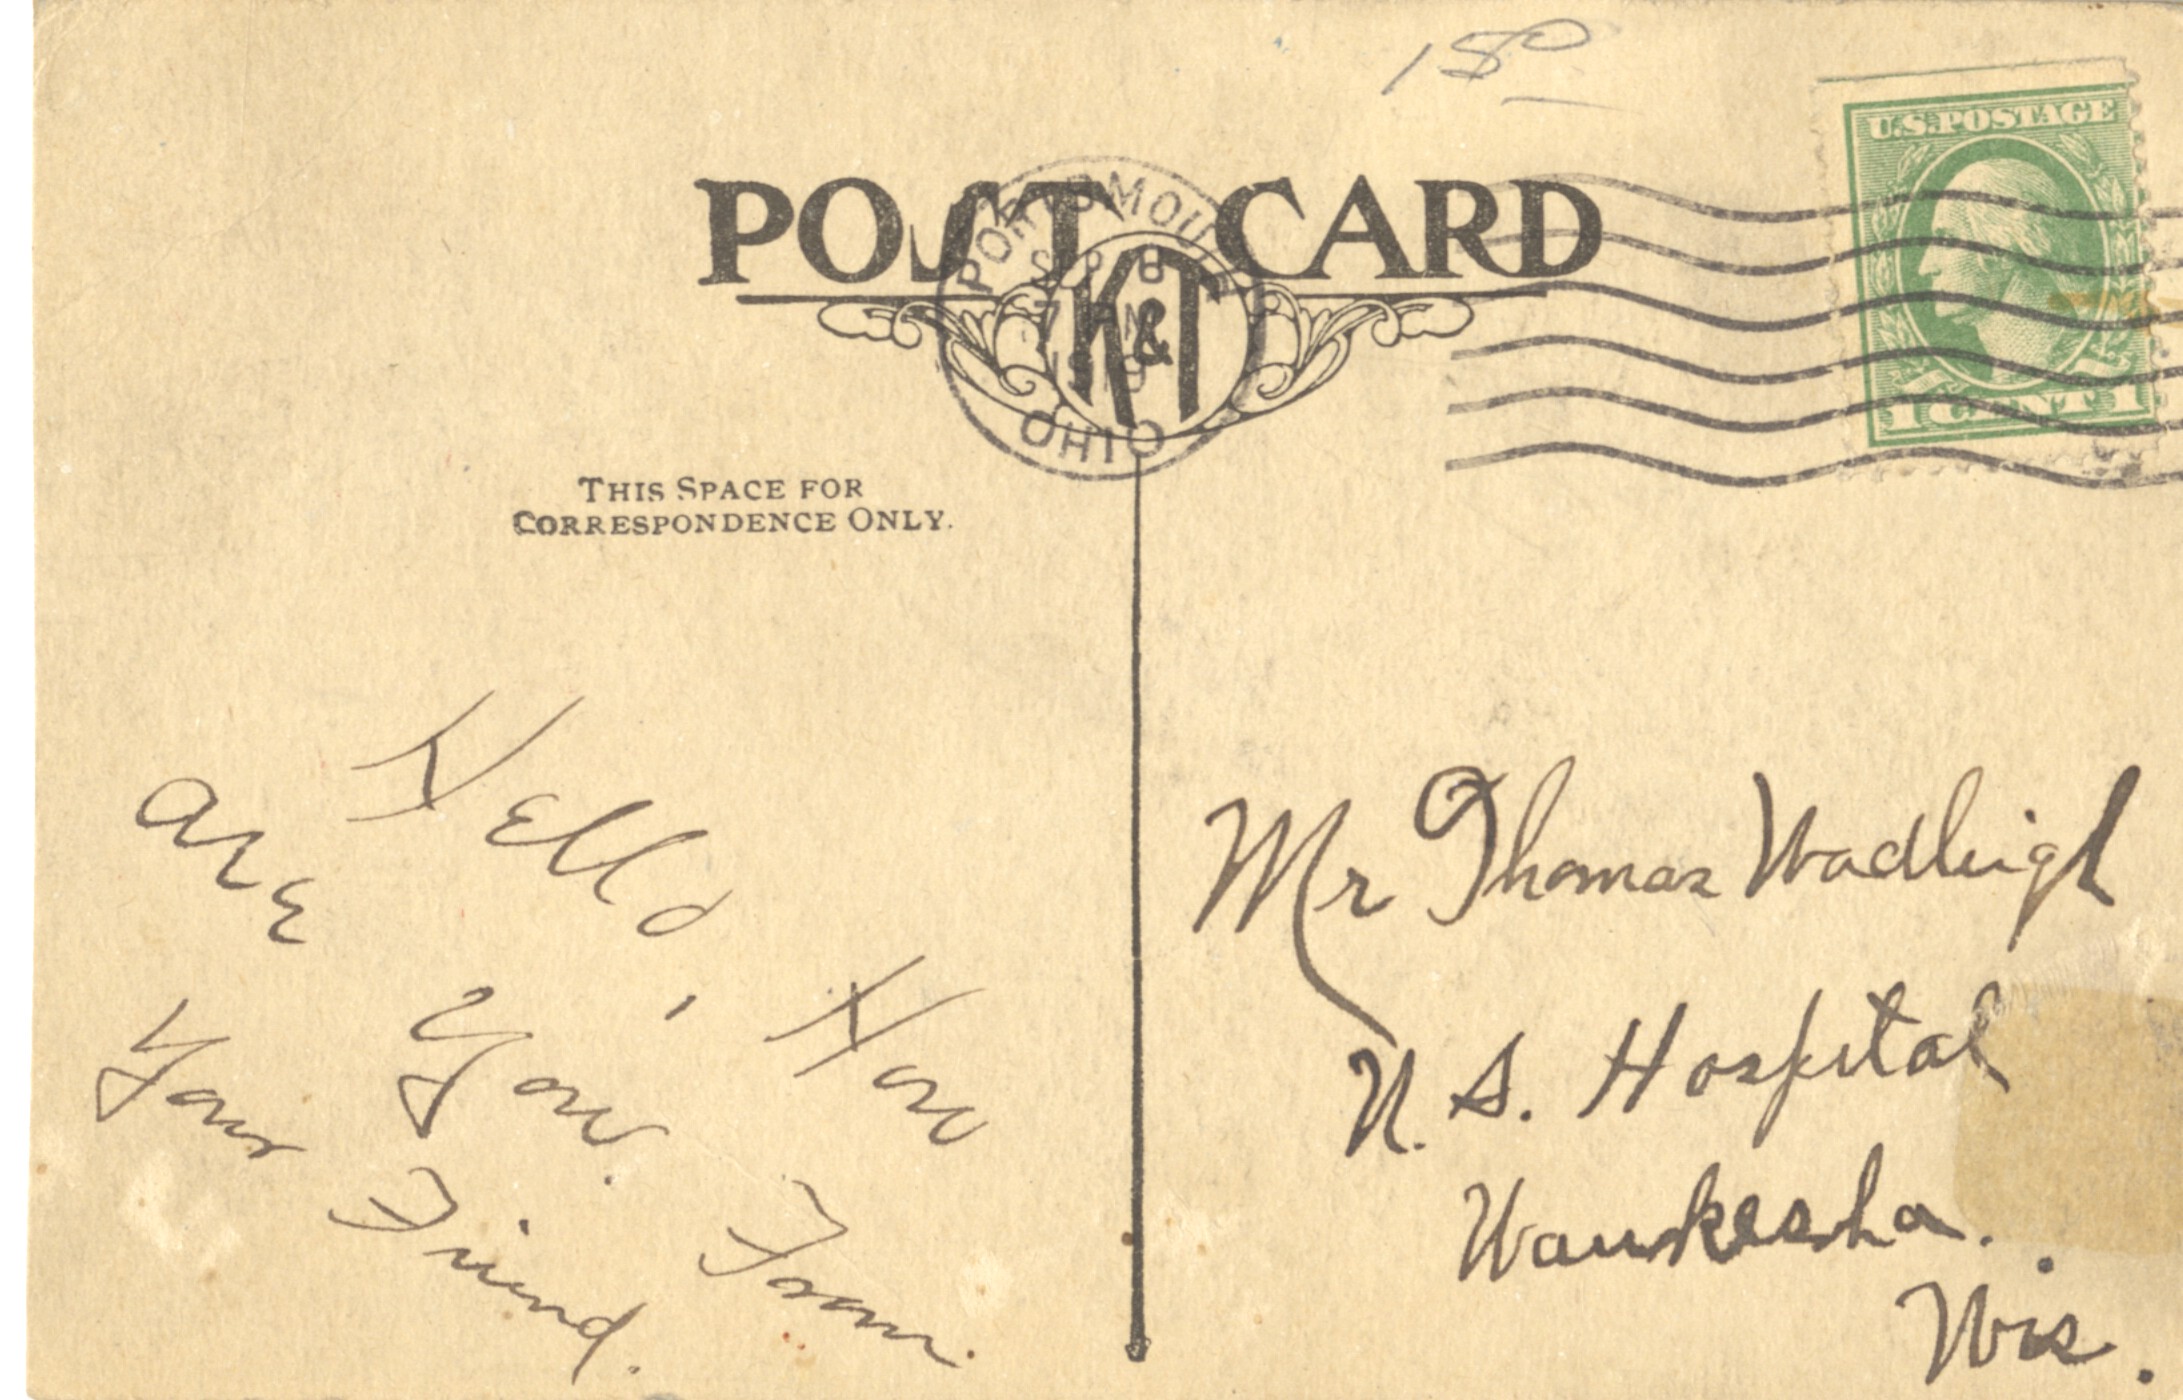 POST CARD
K&T
PORTSMOUTH
OHIO
U.S. POSTAGE
1 CENT 1
THIS SPACE FOR
CORRESPONDENCE ONLY.
Hello, How
are you.
Your Friend.
From.
Mr Thomas Wadleigh
N. S. Hospital
Waukesha.
Wis.